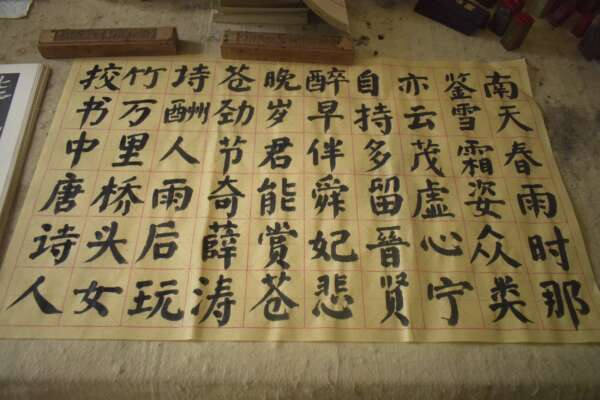 南天春雨时那
鉴雪霜姿众类
亦云茂虚心宁
自持多留晋贤
醉早伴舜妃悲
晚岁君能赏苍
苍劲节奇薛涛
诗酬人雨后玩
竹万里桥头女
挍书中唐诗人